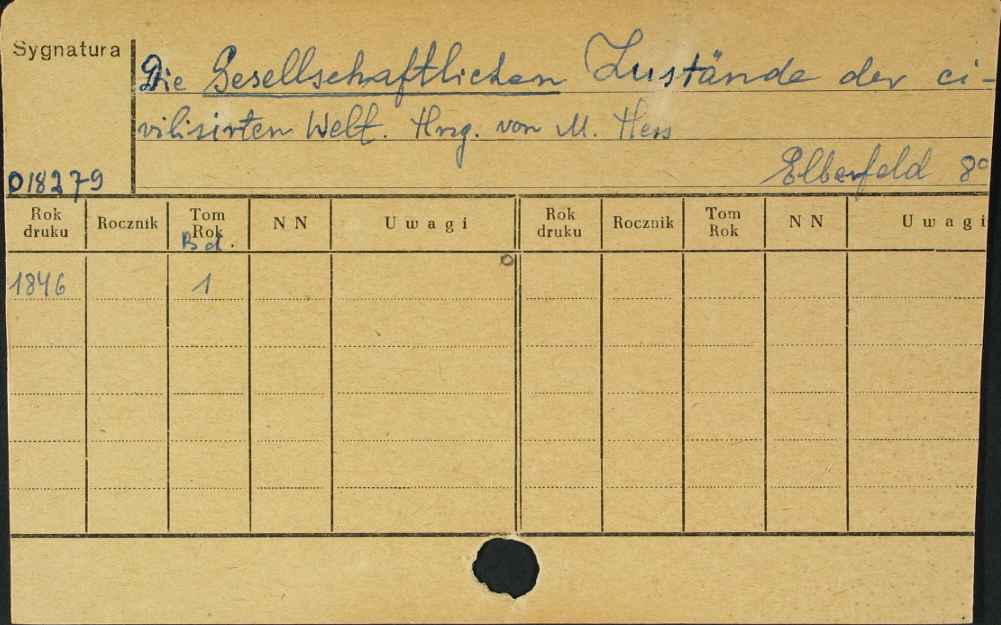 Sygnatura
Die Gesellschaftlichen Zustände der ci-
vilisirten Welt. Hrsg. von M. Hess
Elberfeld 8°
018279
Rok druku Rocznik Tom Rok Bd. N N Uwagi Rok druku Rocznik Tom Rok N N Uwagi
1846 1